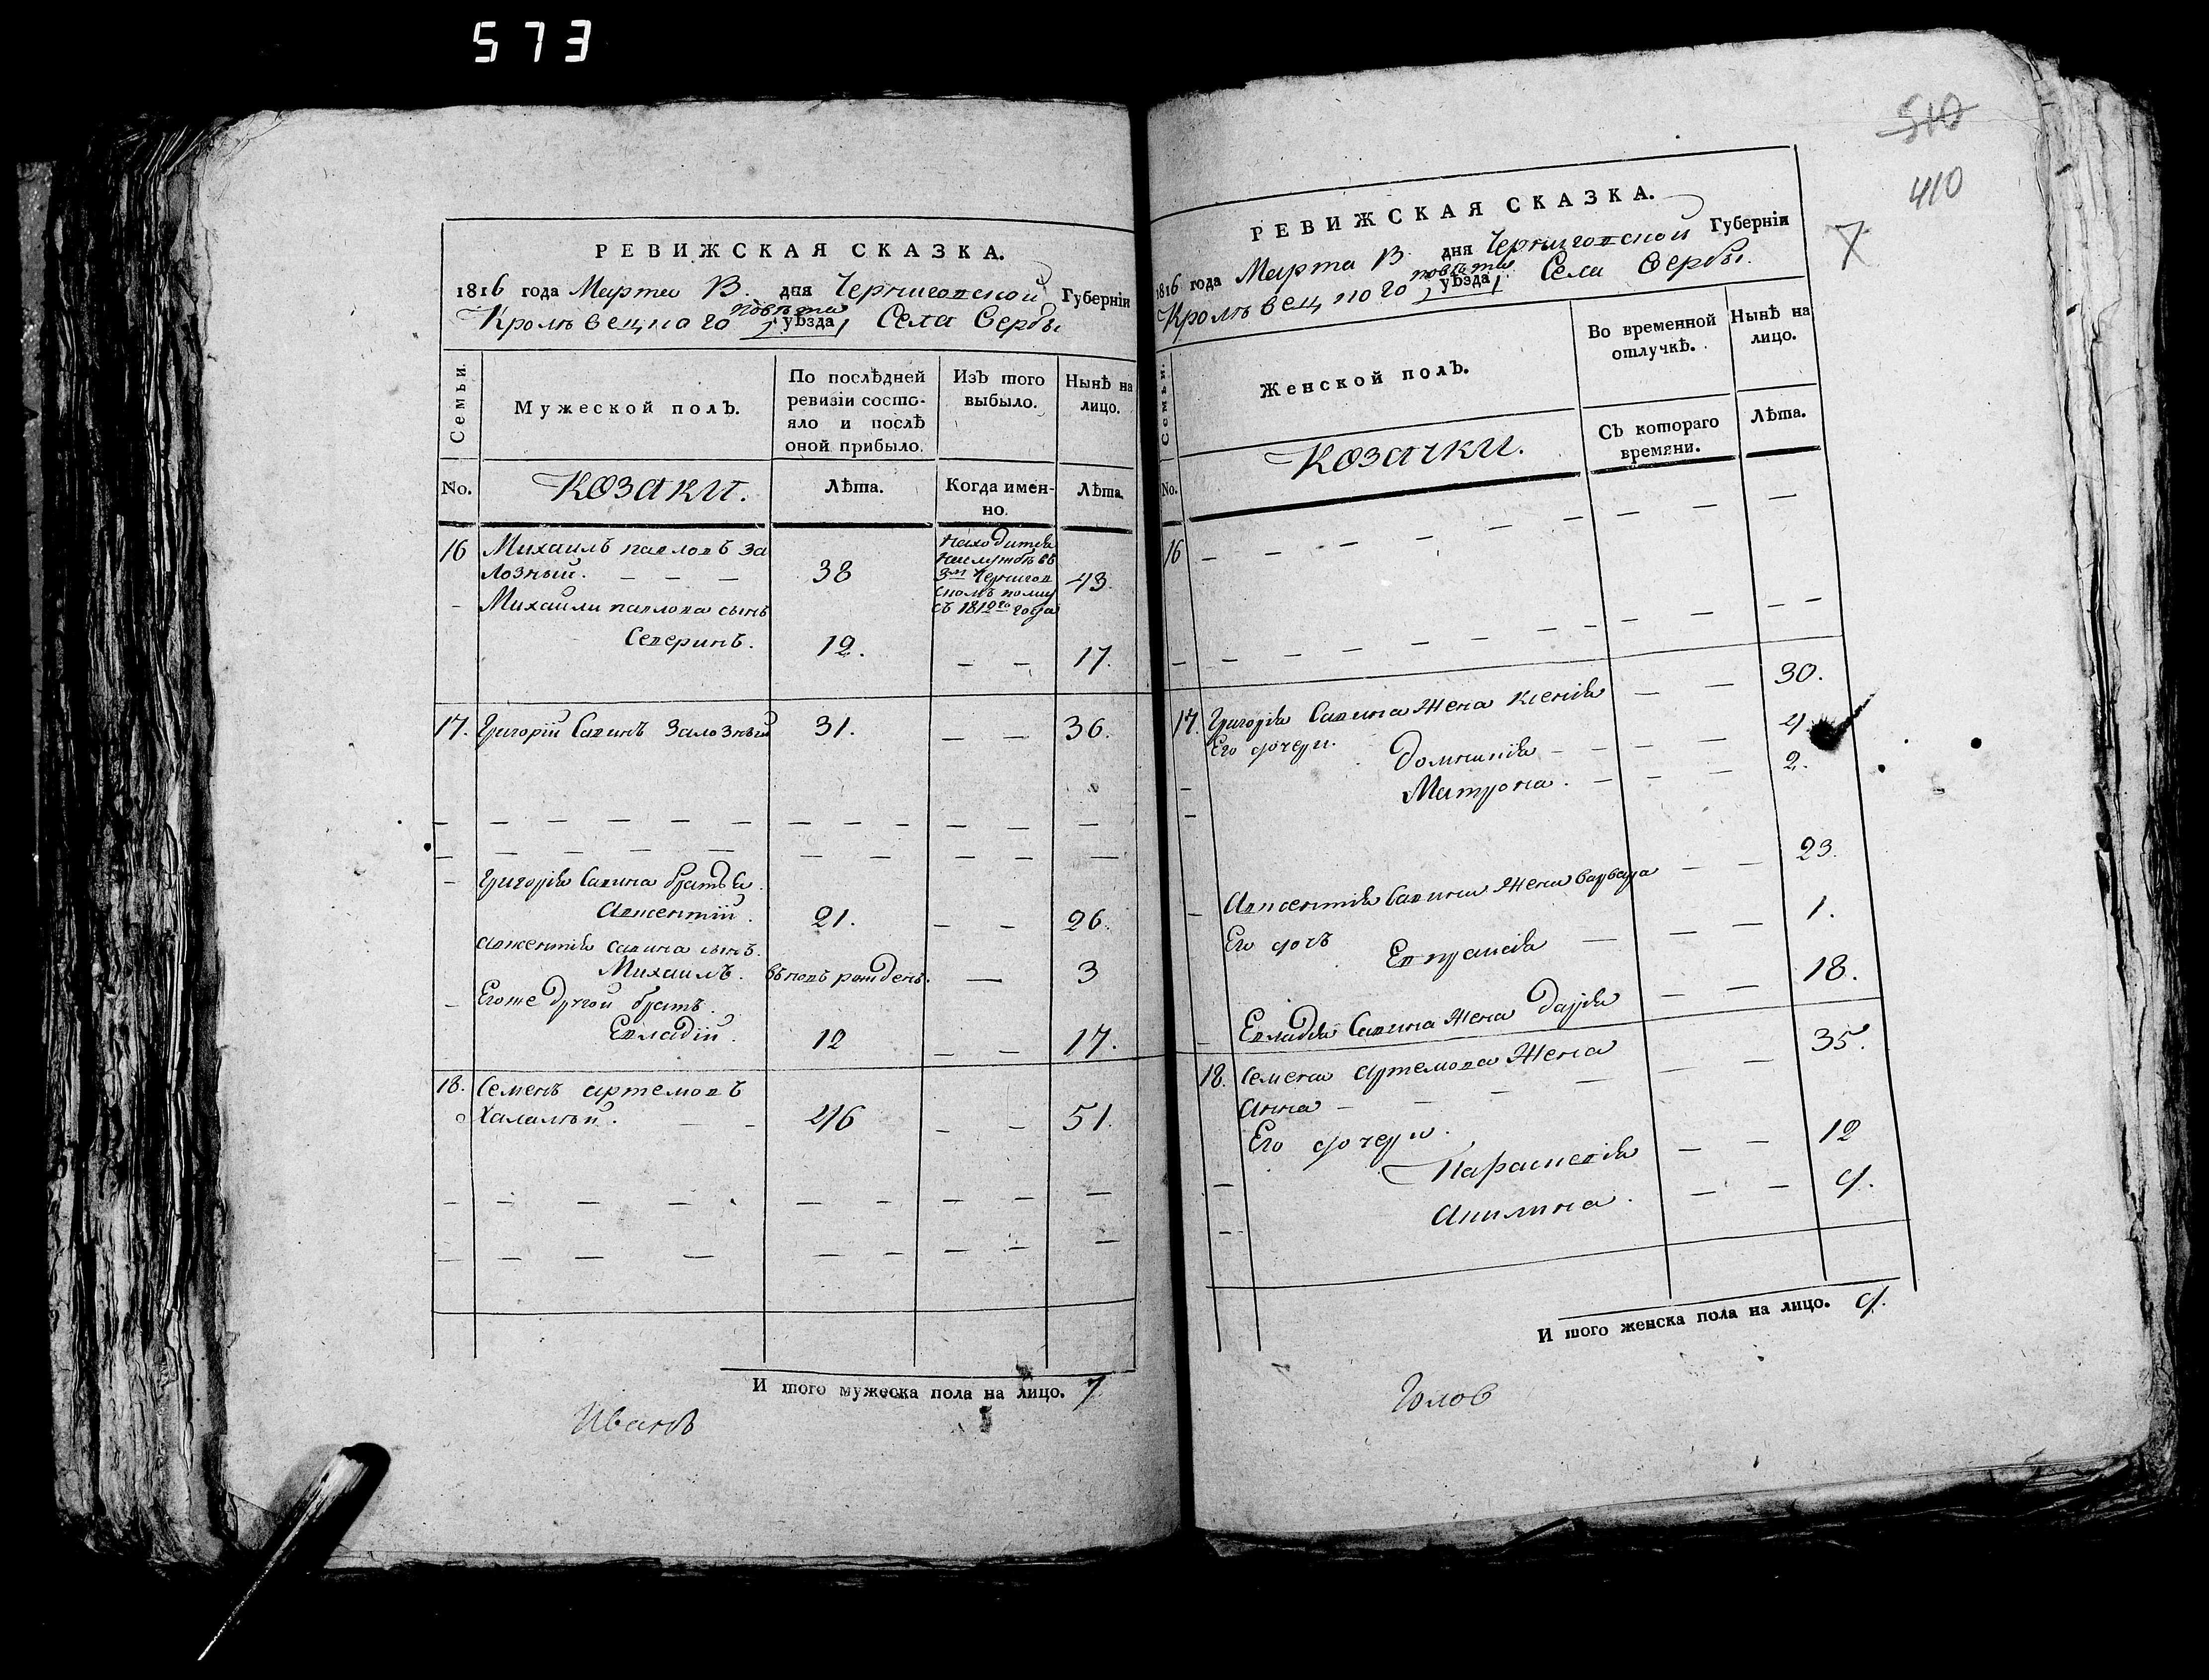 573
РЕВИЖСКАЯ СКАЗКА.
1816 года Марта дня Черниговской Губерніи
Кролѣвецкого повѣта уѣзда Села Вербы
Семьи.
Мужеской полъ.
По послѣдней ревизіи состо-
яло и послѣ
оной прибыло.
Изъ того
выбыло.
Нынѣ на
лицо.
No.
Козаки.
Лѣта.
Когда имен-
но.
Лѣта.
16 Михаилъ павловъ за
лозный. — — — 38 43.
Находится
на службѣ въ
3м Чернигов
скомъ полку
съ 1812го года
— Михаила павлова сынъ
Северинъ. 12. — — 17.
17. Григорій Савинъ Залозный 31. — — 36.
— Григорія Савина братья.
Авксентій. 21. — — 26.
Авксентія Савина сынъ.
Михаилъ. вновь рожденъ. — 3
— Егоже другой братъ.
Евладій. 12 — — 17.
18. Семенъ Артемовъ
Халамѣй. — — 46 — — 51.
И того мужеска пола на лицо. 7
Иванъ
510
410
7
РЕВИЖСКАЯ СКАЗКА.
1816 года Марта дня Черниговской Губерніи
Кролѣвецкого повѣта уѣзда Села Вербы.
Семьи.
Женской полъ.
Во временной
отлучкѣ.
Нынѣ на
лицо.
No.
Козачки.
Съ котораго
времяни.
Лѣта.
16 — — — — — — — —
17. Григорія Савина Жена Ксенія — — 30.
Его дочери.
Домникія — — — — 4
Матрона. — — — 2.
— Авксентія Савина Жена Варвара — — 23.
Его дочь Евпраксія — — — 1.
— Евладія Савина Жена Дарія — — 18.
18. Семена Артемова Жена
Анна — — — — — 35.
Его дочери.
Параскевія — — 12
Акилина. — — 9.
И того женска пола на лицо. 9.
Голов